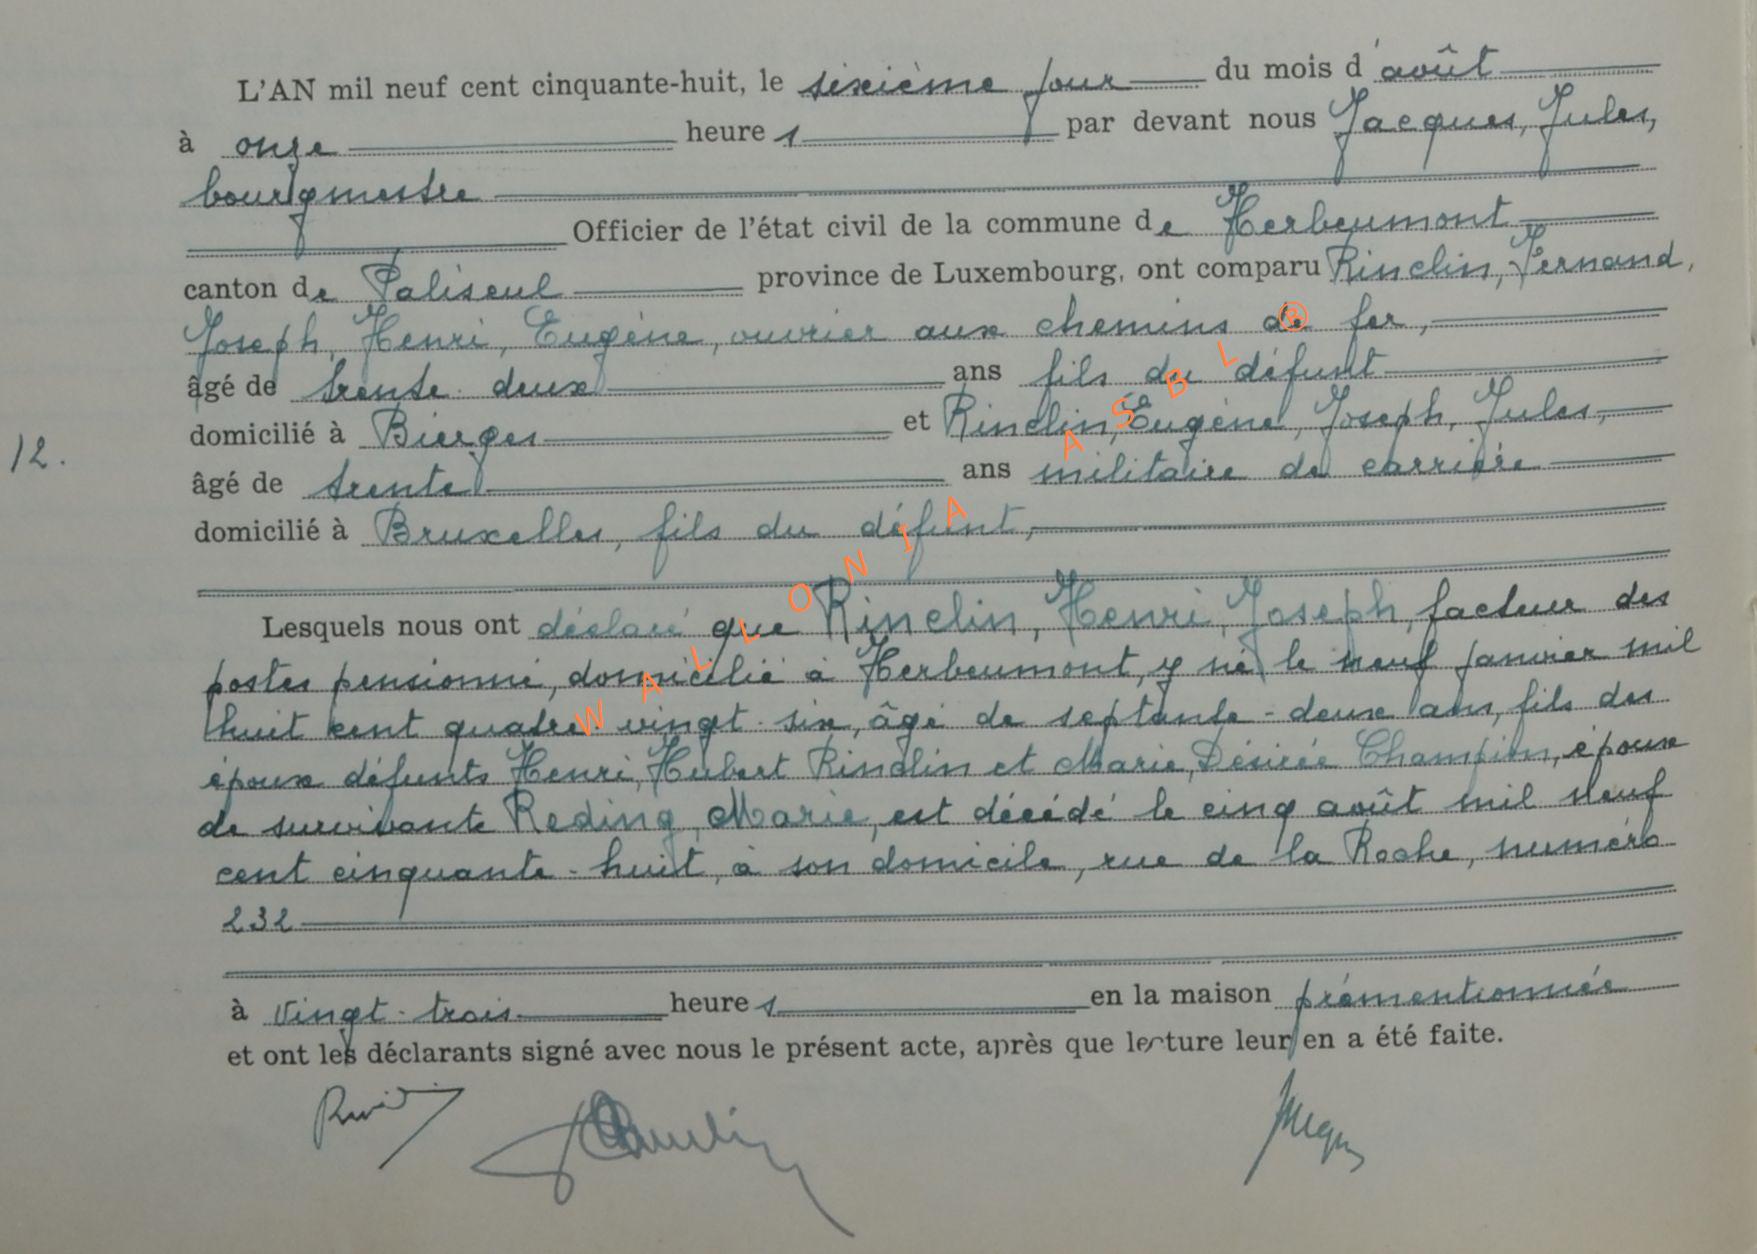 L'AN mil neuf cent cinquante-huit, le sixième jour du mois d'août
à onze heures par devant nous Jacques, Jules,
bourgmestre
Officier de l'état civil de la commune de Herbeumont
canton de Paliseul province de Luxembourg, ont comparu Rinclin, Fernand,
Joseph, Henri, Eugène, ouvrier aux chemins de fer,
âgé de trente deux ans fils du défunt
domicilié à Bierges et Rinclin, Eugène, Joseph, Jules,
12.
âgé de trente ans militaire de carrière
domicilié à Bruxelles, fils du défunt,
Lesquels nous ont déclaré que Rinclin, Henri, Joseph, facteur des
postes pensionné, domicilié à Herbeumont, y né le neuf janvier mil
huit cent quatre vingt-six, âgé de septante-deux ans, fils des
époux défunts Henri, Hubert Rinclin et Marie, Désirée Champion, époux
de survivante Reding, Marie, est décédé le cinq août mil neuf
cent cinquante-huit, à son domicile, rue de la Roche, numéro
232
à vingt-trois heures en la maison prémentionnée
et ont les déclarants signé avec nous le présent acte, après que lecture leur en a été faite.
WALLONIA ASBL ®